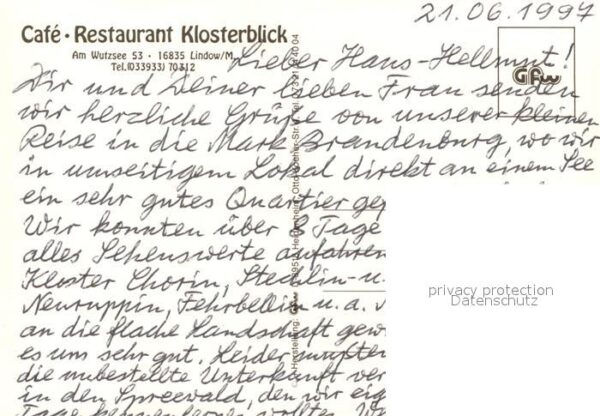 21.06.1997
Café · Restaurant Klosterblick
Am Wutzsee 53 · 16835 Lindow/M.
Tel. (033933) 70312
Gfw
Lieber Hans-Hellmut!
Dir und Deiner lieben Frau senden
wir herzliche Grüße von unserer kleinen
Reise in die Mark Brandenburg, wo wir
in umseitigem Lokal direkt an einem See
ein sehr gutes Quartier
Wir konnten über 8 Tage
alles Sehenswerte anfahren
Kloster Chorin, Stechlin- u.
Neuruppin, Fehrbellin u. a.
an die flache Landschaft gew
es uns sehr gut. Leider mußten
die unbestellte Unterkunft ver
in den Spreewald, den wir eig
Tage kennenlernen wollten. W
privacy protection
Datenschutz